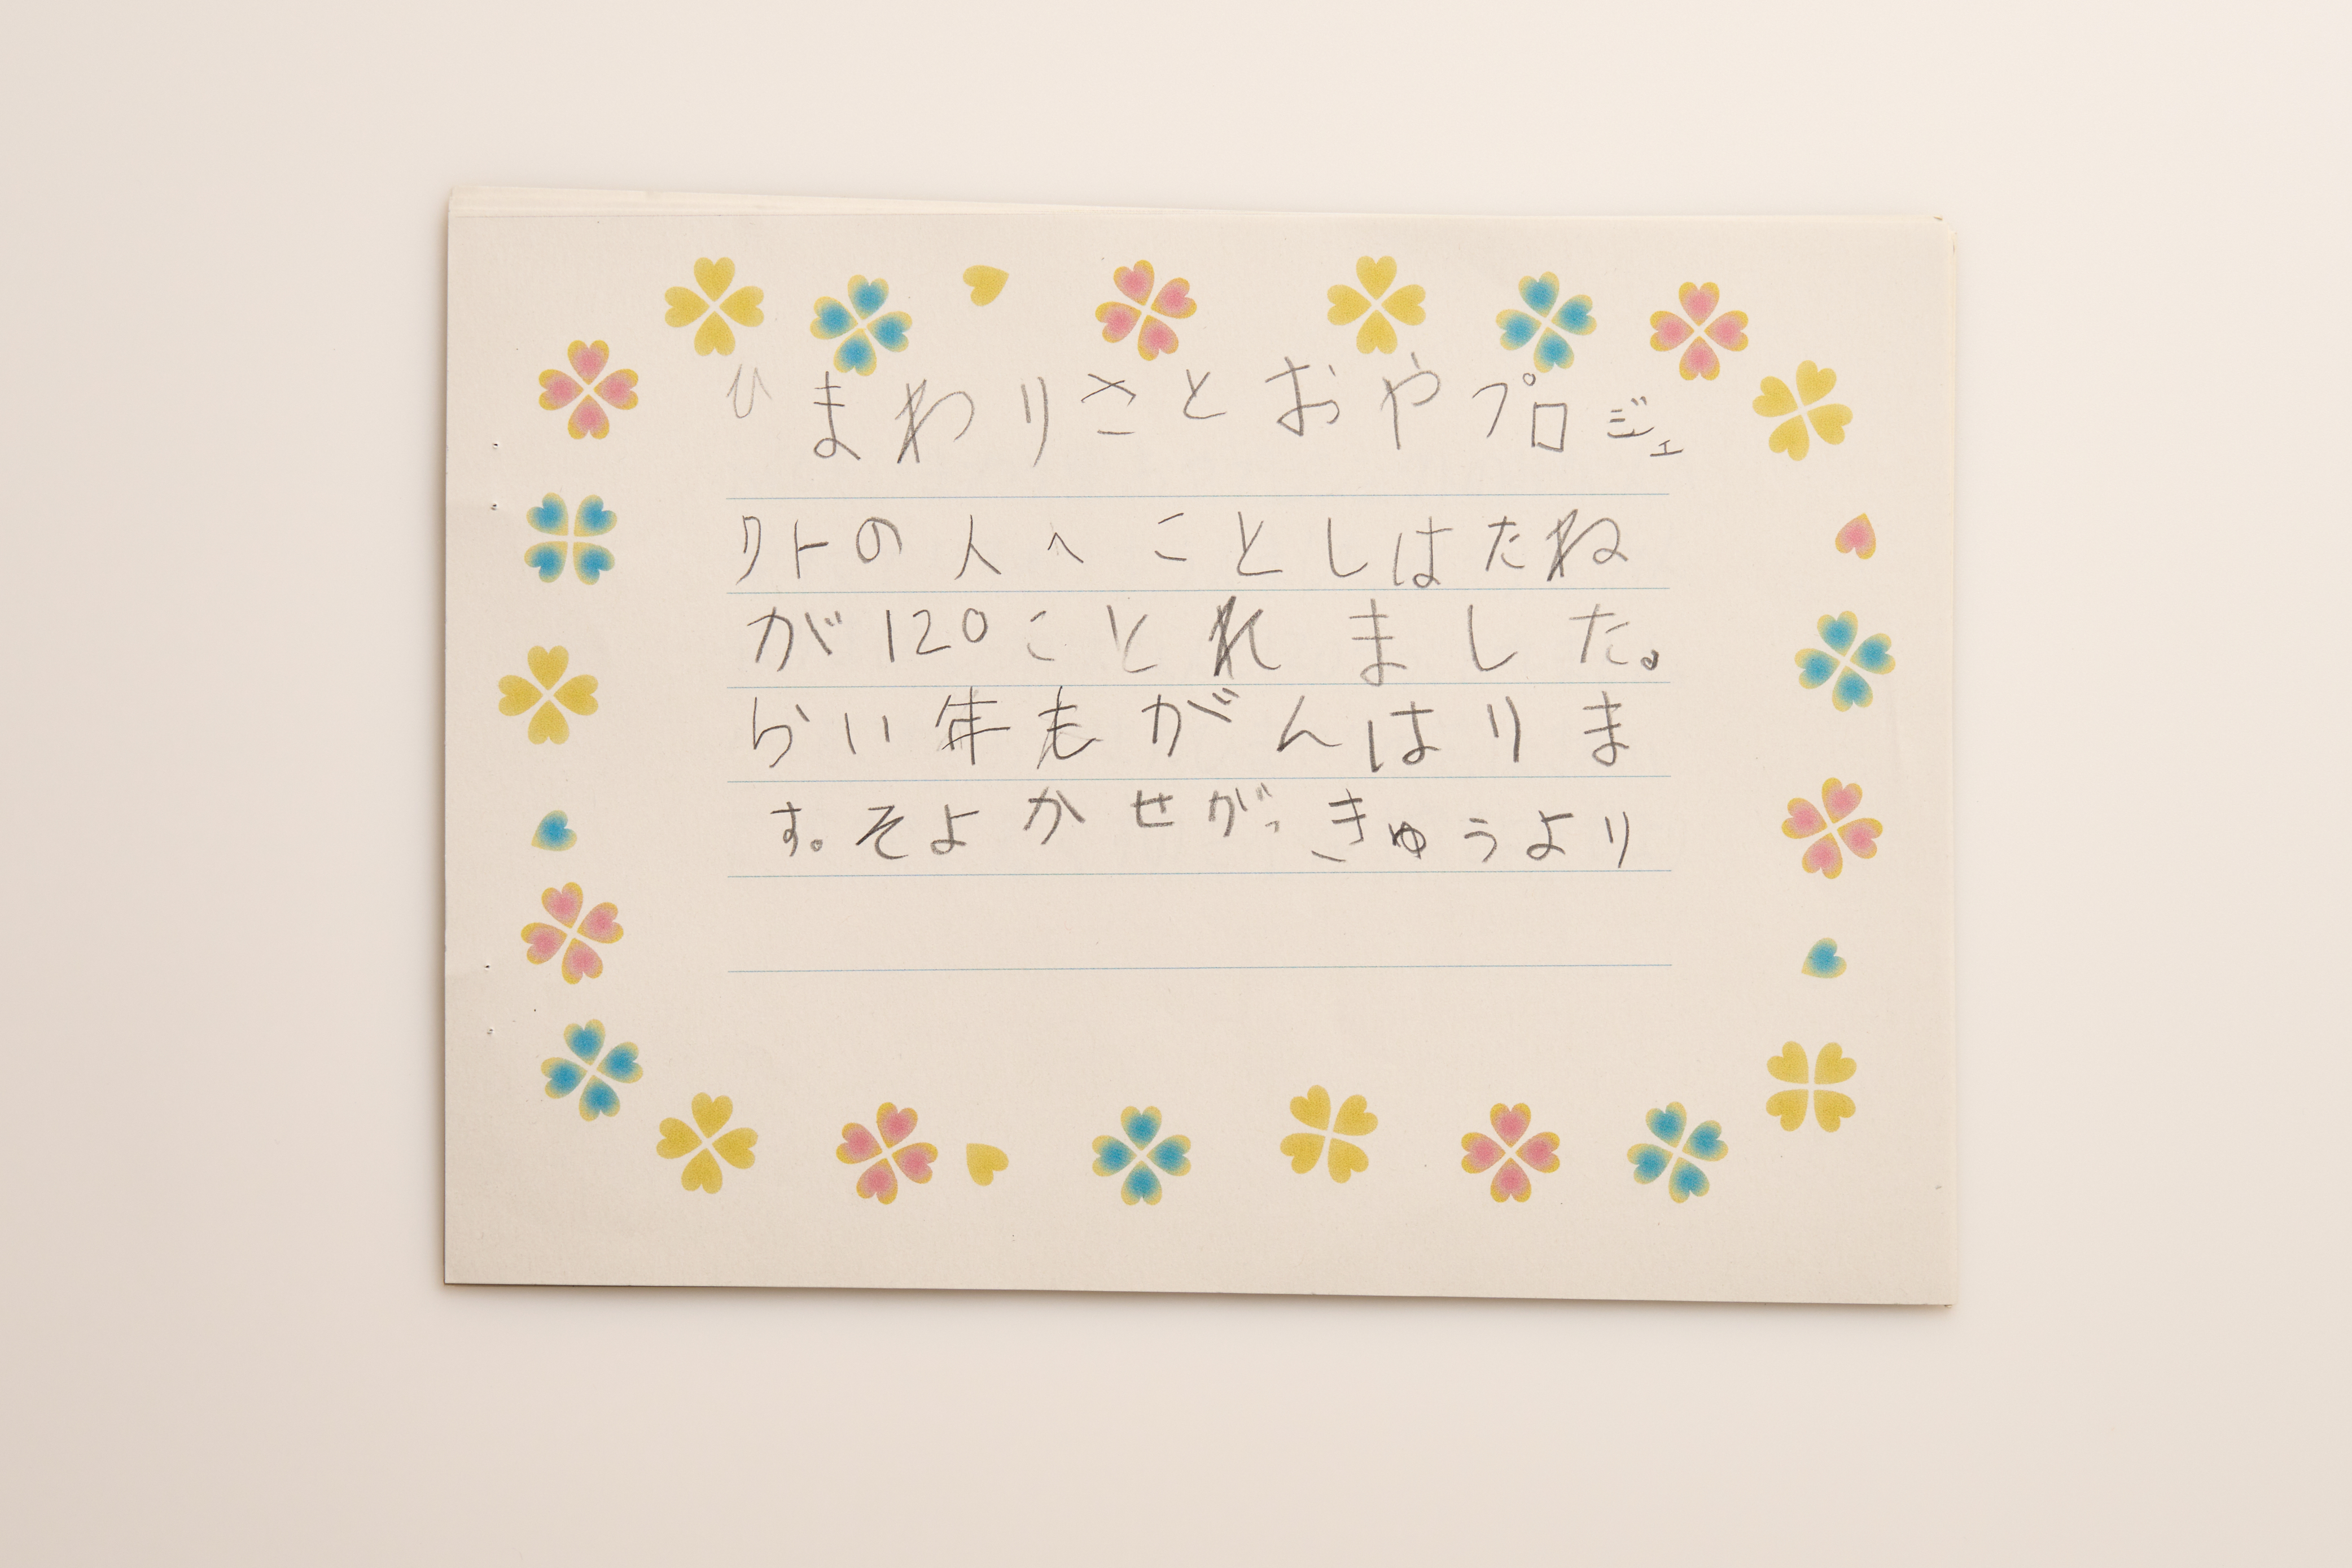 ひまわりさとおやプロジェ
クトの人へことしはたね
が120ことれました。
らい年もがんはりま
す。そよかせがっきゅうより